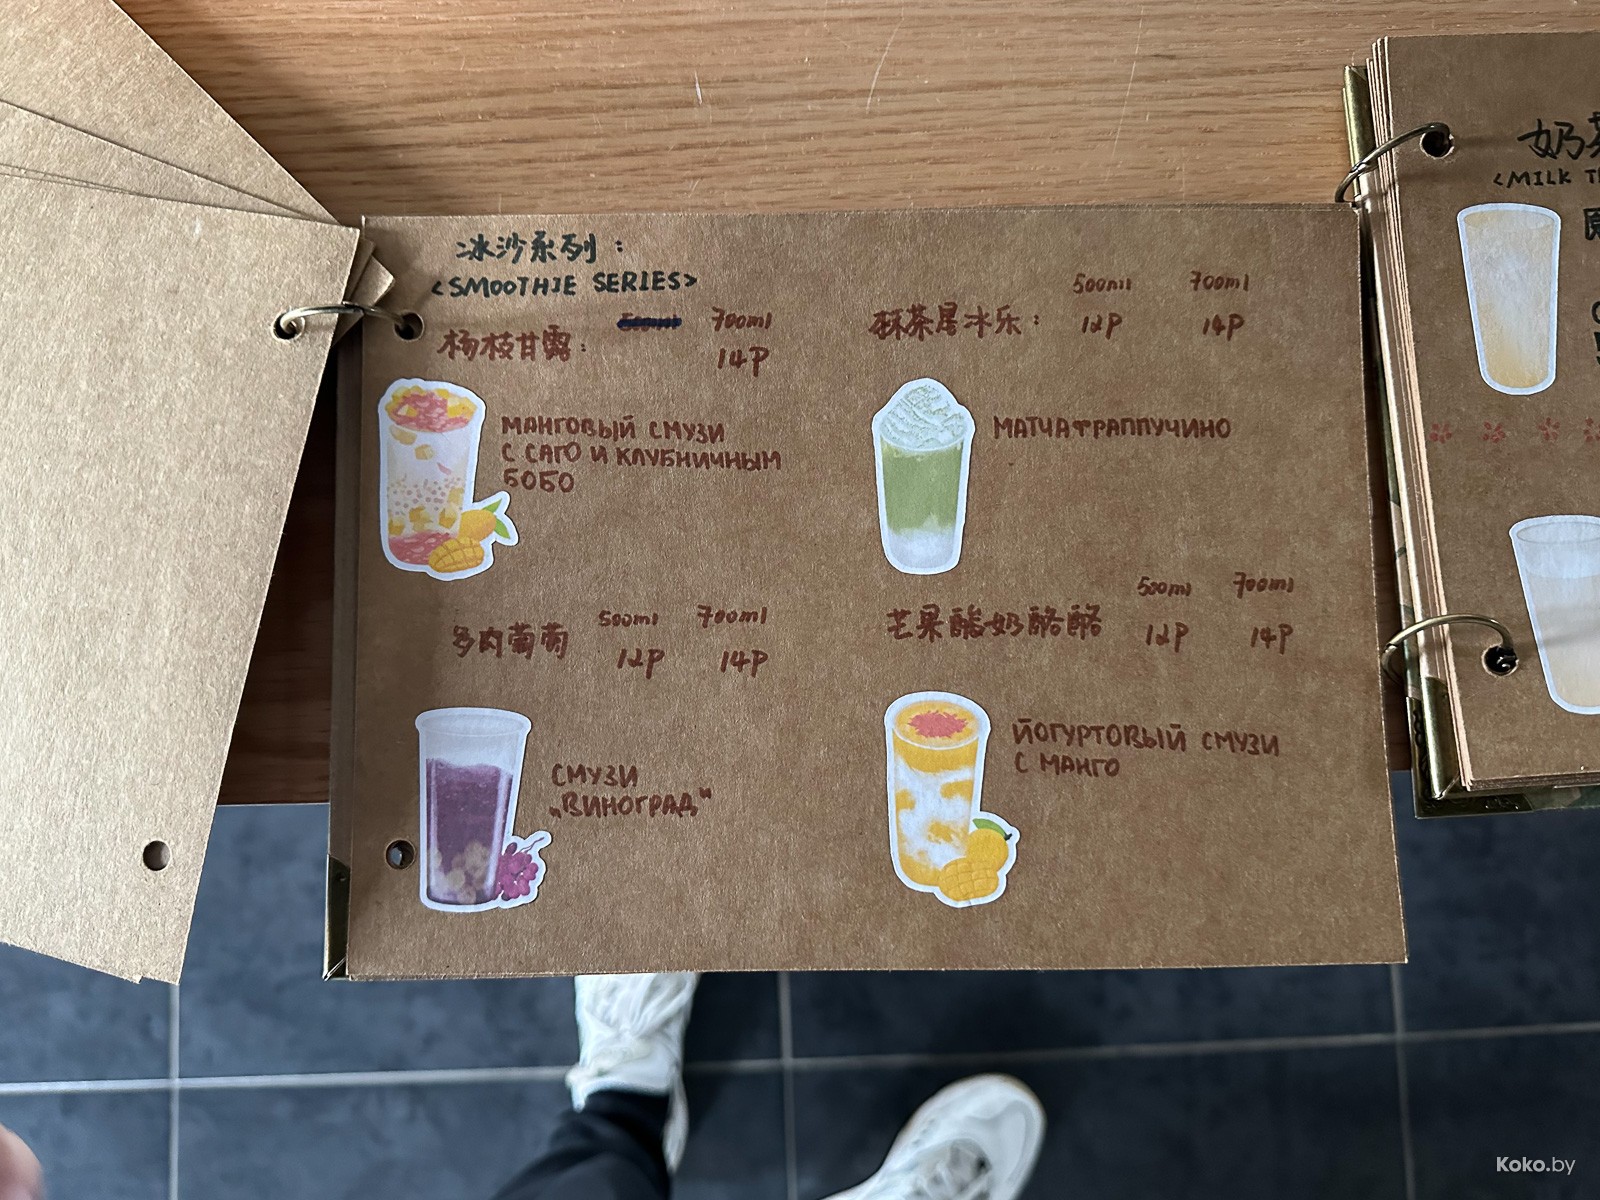 冰沙系列:
<SMOOTHIE SERIES>
杨枝甘露: 700ml
14P
МАНГОВЫЙ СМУЗИ
С САГО И КЛУБНИЧНЫМ
БОБО
500ml 700ml
抹茶星冰乐: 12P 14P
МАТЧА ФРАППУЧИНО
500ml 700ml
多肉葡萄 12P 14P
СМУЗИ
„ВИНОГРАД"
500ml 700ml
芒果酸奶酪酪 12P 14P
ЙОГУРТОВЫЙ СМУЗИ
С МАНГО
奶
<MILK
Koko.by